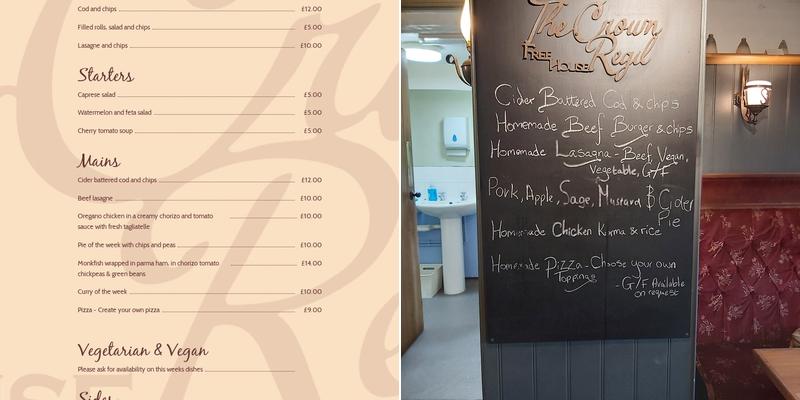 Cod and chips £12.00
Filled rolls, salad and chips £5.00
Lasagne and chips £10.00
Starters
Caprese salad £5.00
Watermelon and feta salad £5.00
Cherry tomato soup £5.00
Mains
Cider battered cod and chips £12.00
Beef lasagne £10.00
Oregano chicken in a creamy chorizo and tomato £10.00
sauce with fresh tagliatelle
Pie of the week with chips and peas £10.00
Monkfish wrapped in parma ham, in chorizo tomato £14.00
chickpeas & green beans
Curry of the week £10.00
Pizza - Create your own pizza £9.00
Vegetarian & Vegan
Please ask for availability on this weeks dishes
The Crown
Free House Regil
Cider Battered Cod & chips
Homemade Beef Burger & chips
Homemade Lasagna - Beef, Vegan,
Vegetable, G/F
Pork, Apple, Sage, Mustard & Cider
Pie
Homemade Chicken Korma & rice
Homemade Pizza - Choose your own
Toppings
- G/F Available
on request